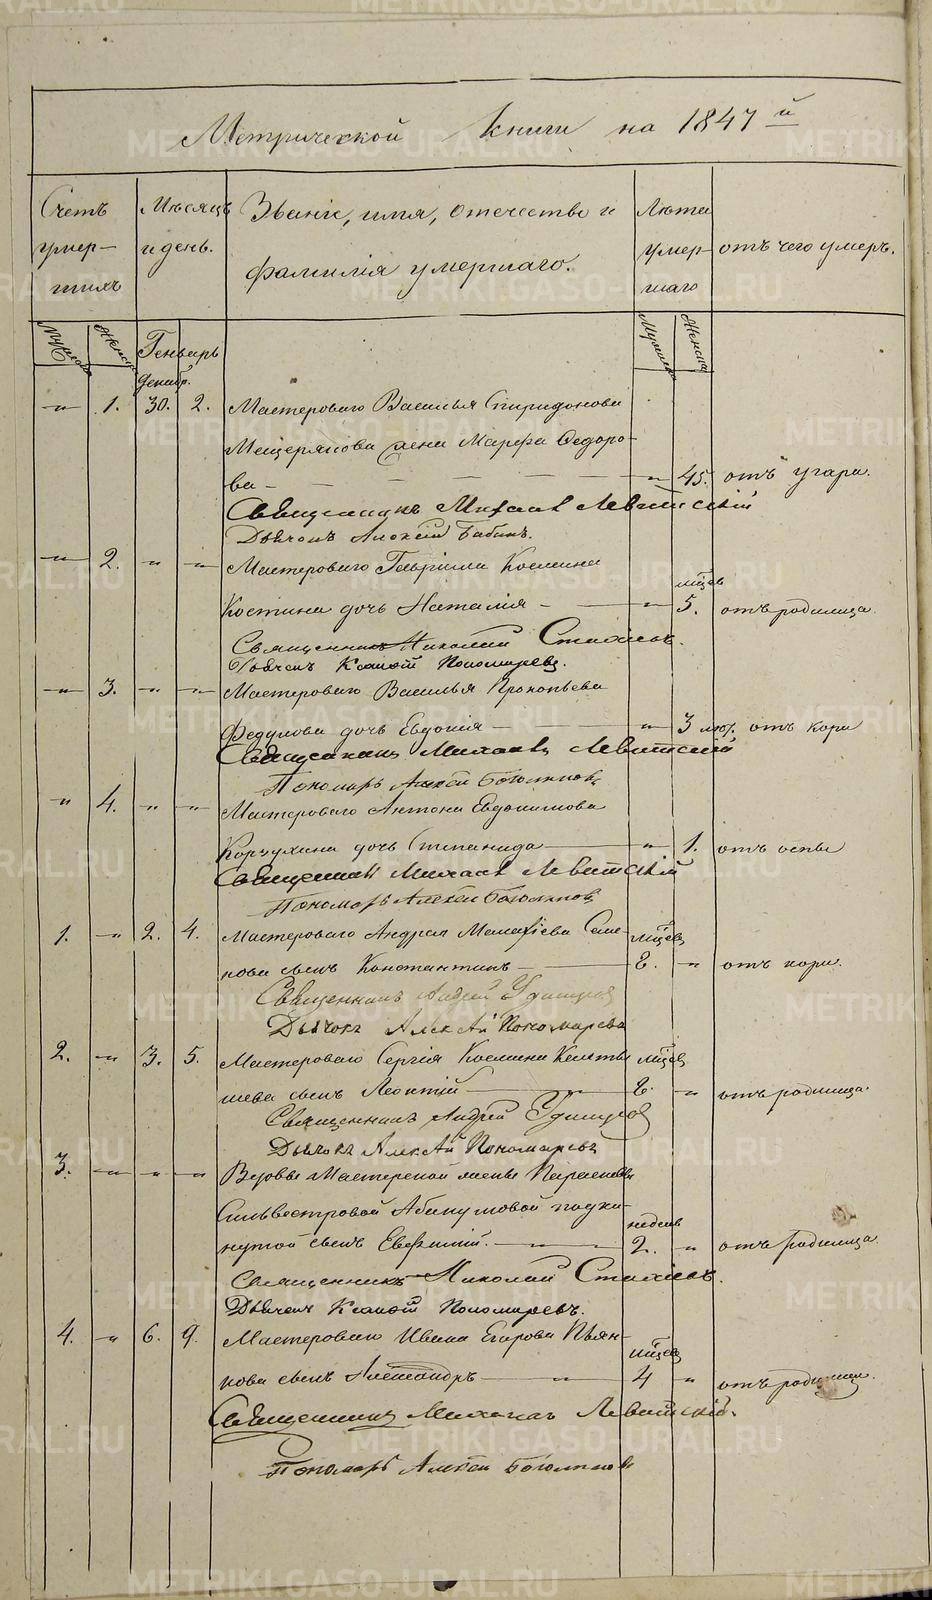 Метрической книги на 1847й
Счетъ умер- шихъ
Мѣсяцъ и день.
Званіе, имя, отечество и фамилія умершаго.
Лѣта умер- шаго
отъ чего умеръ.
Мужеска Женска Генварь Мужеска Женска
Декабр.
—"— 1. 30. 2. Мастероваго Василья Спиридонова
Мещерякова жена Марфа Федоро-
ва — " 45. отъ угара.
Священникъ Михаилъ Левитскій
Дьячокъ Алексѣй Бабинъ.
—"— 2. " " Мастероваго Гавріила Космина
мѣсяцъ
Костина дочь Наталія — " 5. отъ родимца.
Священникъ Николай
Дьячекъ Пономаревъ.
—"— 3. " " Мастероваго Василья Прокопьева
Федулова дочь Евдокія — " 3 отъ кори
Священникъ Михаилъ Левитскій
Пономарь Алексѣй
" 4. " " Мастероваго Антона Евдокимова
Корзухина дочь Степанида — " 1. отъ оспы
Священникъ Михаилъ Левитскій
Пономарь Алексѣй
1. " 2. 4. Мастероваго Андрея Семе-
нова сынъ Константинъ — 8. " отъ кори.
Священникъ Андрей Удинцовъ
Дьячокъ Алексѣй Пономаревъ
2. " 3. 5. Мастероваго Сергія Космина
шева сынъ Леонтій — 8. " отъ родимца.
Священникъ Андрей Удинцовъ
Дьячокъ Алексѣй Пономаревъ
3. " " " Вдовы Мастерской жены Парасковьи
Сильвестровой подки-
недѣль
нутой сынъ Евфимій. — 2. " отъ родимца.
Священникъ Николай
Дьячекъ Пономаревъ.
4. " 6. 9. Мастероваго Ивана Егорова Пьян-
кова сынъ Александръ — 4 " отъ родимца.
Священникъ Михаилъ Левитскій.
Пономарь Алексѣй
METRIKI.GASO-URAL.RU